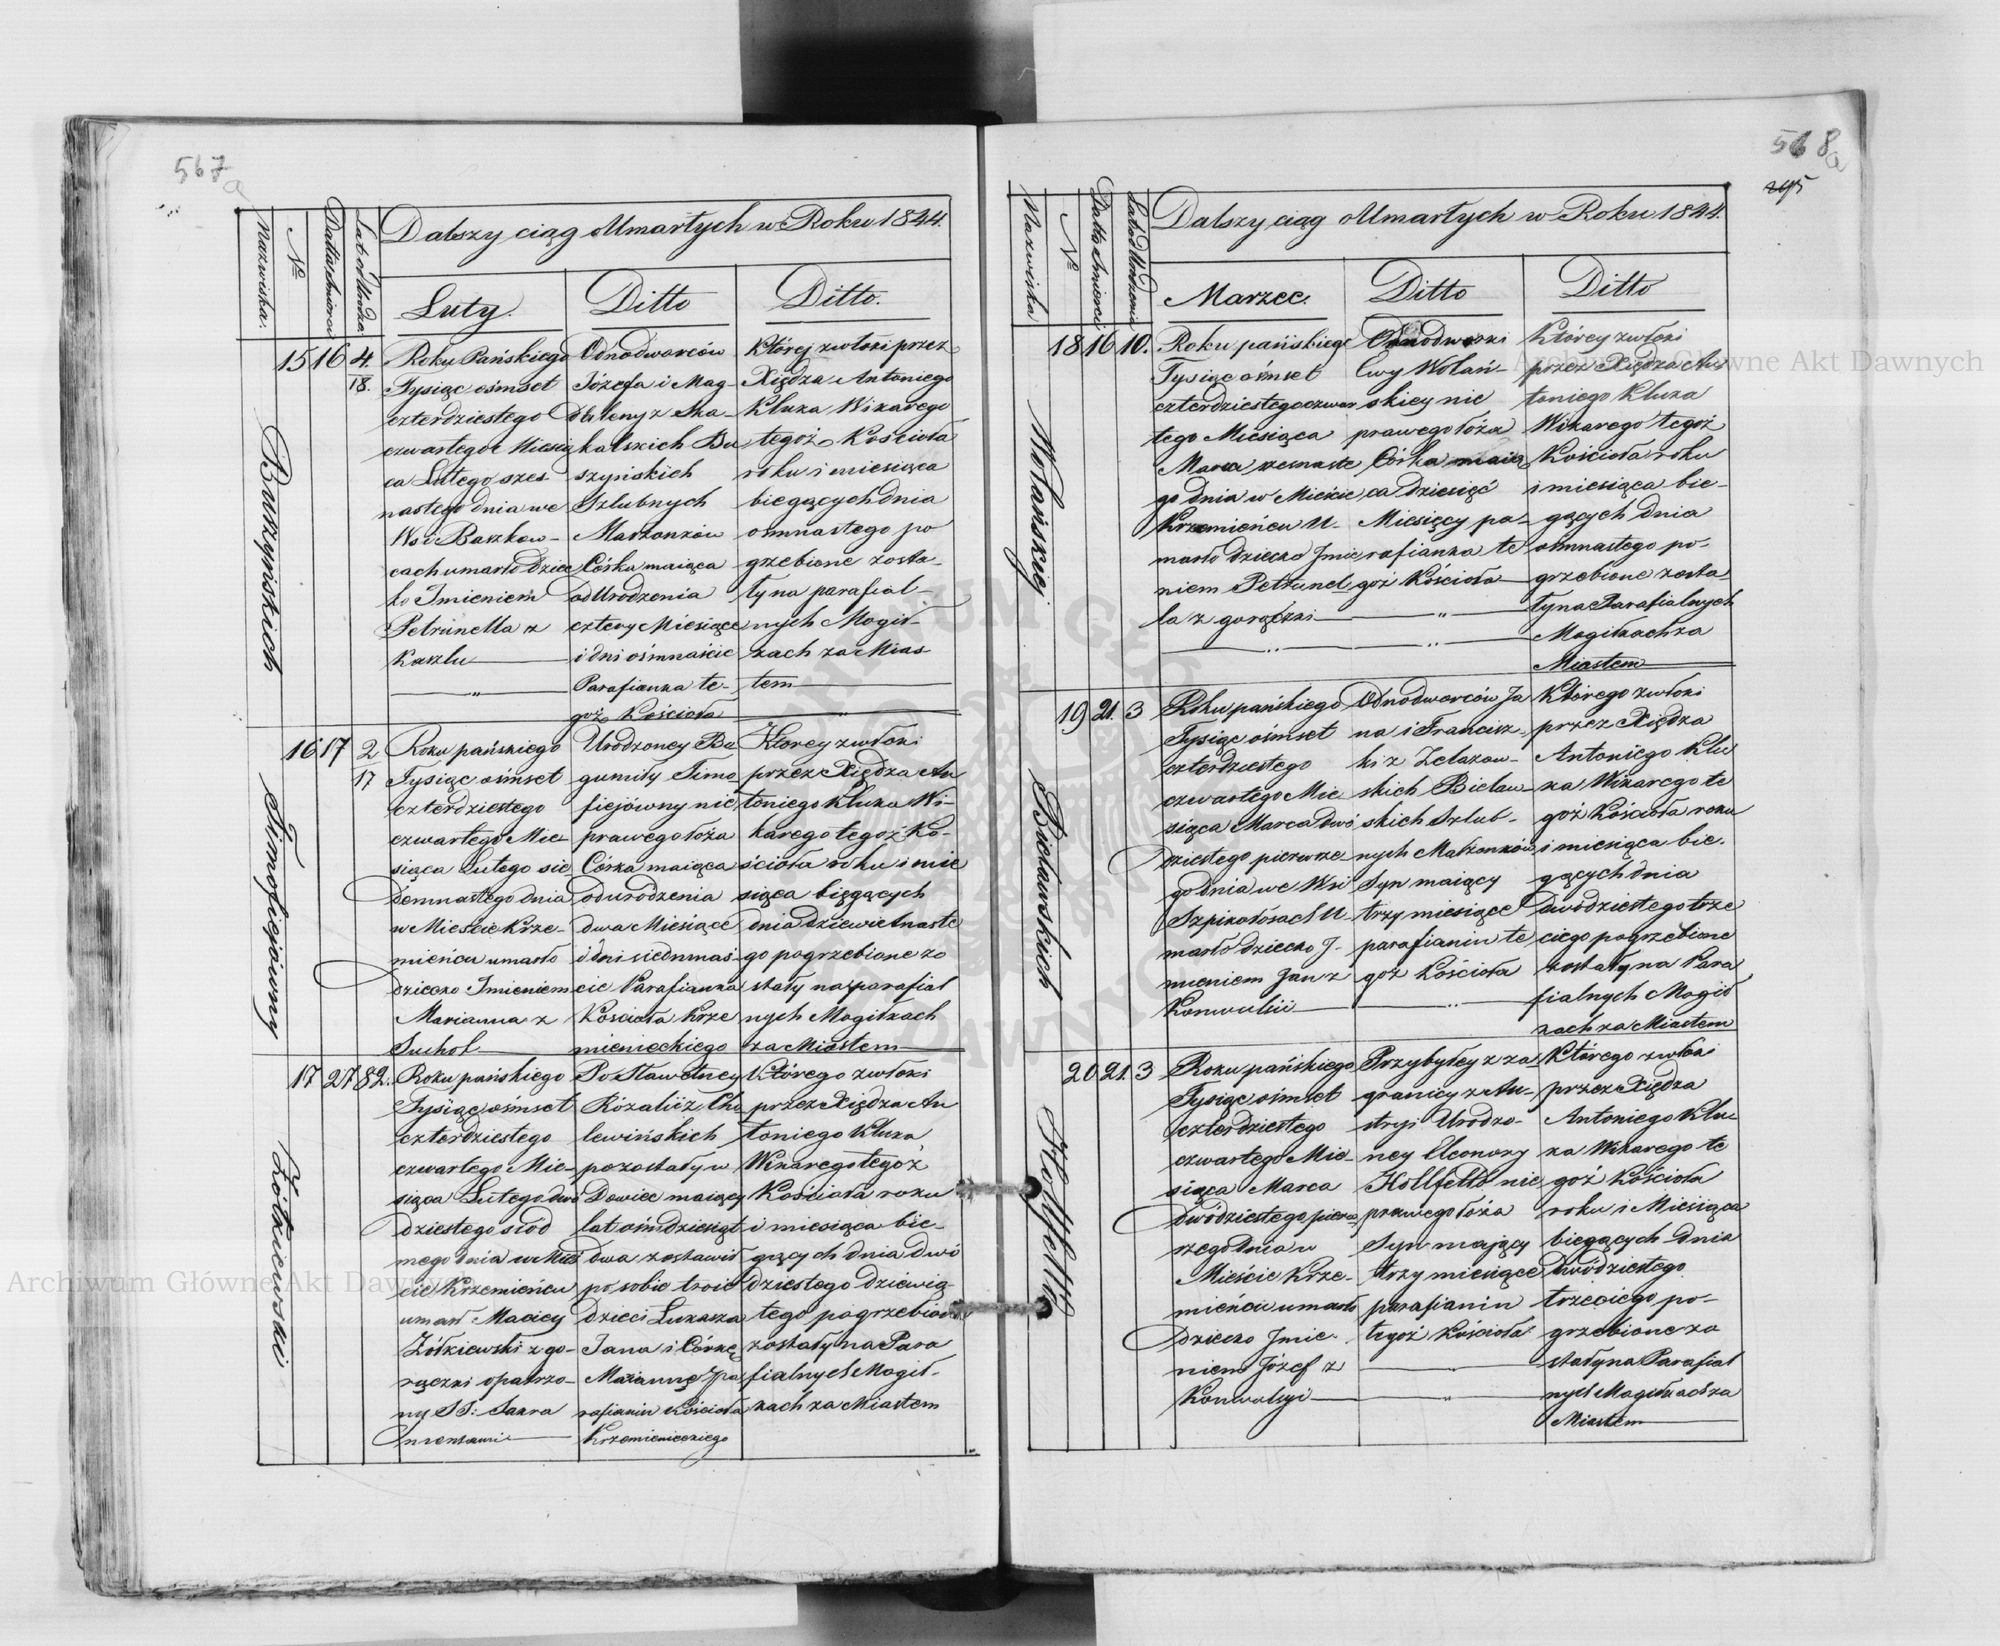 567a
Dalszy ciąg Umarłych w Roku 1844.
Nazwiska.
№
Datta śmierci
Lat od Urodze.
Luty.
Ditto
Ditto.
15 16 4/18.
Buszyńskich
Roku Pańskiego
Tysiąc ośmset
czterdziestego
czwartego Miesią
ca Lutego szes
nastego dnia we
Wsi Baszkow-
cach umarło dziec
ko Imieniem
Petrunella z
Kaszlu
Odnodworców
Józefa i Mag-
daleny z Ska-
kalskich Bu
szyńskich
Szlubnych
Małżonków
Córka maiąca
od Urodzenia
cztery Miesiące
i dni ośmnaście
Parafianka te-
goż Kościoła
Której zwłoki przez
Xiędza Antoniego
Kluka Wikarego
tegoż Kościoła
roku i miesiąca
biegących dnia
osmnastego po
grzebione zosta-
ły na parafial-
nych Mogił-
kach za Mias-
tem
16 17 2/17
Timofiejówny
Roku pańskiego
Tysiąc ośmset
czterdziestego
czwartego Mie-
siąca Lutego sie
demnastego dnia
w Mieście Krze-
mieńcu umarło
dziecko Imieniem
Marianna z
Suchot
Urodzoney Bo
gumiły Timo
fiejówny nie
prawego łoża
Córka maiąca
od urodzenia
dwa Miesiące
i dni siedmnaś-
cie Parafianka
Koscioła Krze
mienieckiego
Którey zwłoki
przez Xiędza An
toniego Kluka Wi-
karego tegoż Ko-
ścioła roku i mie
siąca biegących
dnia dziewietnaste
go pogrzebione zo
stały na parafial
nych Mogiłkach
za Miastem
17 27 82.
Żółkiewski
Roku pańskiego
Tysiąc ośmset
czterdziestego
czwartego Mie-
siąca Lutego dwó
dziestego siód
mego dnia w Mieś
cie Krzemieńcu
umarł Maciey
Żółkiewski z go-
rączki opatrzo-
ny SS: Sakra
mentami
Po Sławetney
Rózalii z Cho
lewińskich
pozostały w
Dowiec maiący
lat ośmdziesiąt
dwa zostawił
po sobie troie
dzieci Łukasza
Jana i Córkę
Mariannę pa
rafianin Kościoła
Krzemienieckiego
Którego zwłoki
przez Xiędza An
toniego Kluka
Wikarego tegoż
Kościoła roku
i miesiąca bie-
gących dnia dwó
dziestego dziewią-
tego pogrzebione
zostały na Para
fialnych Mogił-
kach za Miastem
568a
295
Dalszy ciąg Umarłych w Roku 1844.
Nazwiska
№
Datta śmierci
Lat od Urodzenia
Marzec.
Ditto
Ditto
18 16 10.
Wolańskiej
Roku pańskiego
Tysiąc ośmset
czterdziestego czwar
tego Miesiąca
Marca szesnaste
go dnia w Mieście
Krzemieńcu U-
marło dziecko Jmie
niem Petrunel
la z gorączki
Odnodworki
Ewy Wolań-
skiey nie
prawego łoża
Córka maią
ca dziesięć
Miesięcy pa-
rafianka te
goż Kościoła
Którey zwłoki
przez Xiędza An
toniego Kluka
Wikarego tegoż
Kościoła roku
i miesiąca bie-
gących dnia
ośmnastego po-
grzebione zosta-
ły na Parafialnych
Mogiłkach za
Miastem
19 21. 3
Bielawskich
Roku pańskiego
Tysiąc ośmset
czterdziestego
czwartego Mie
siąca Marca dwó
dziestego pierwsze
go dnia we Wsi
Szpikołosach U-
marło dziecko J-
mieniem Jan z
Konwulsii
Odnodworców Ja
na i Francisz-
ki z Zelazow-
skich Bielaw-
skich Szlub-
nych Małżonków
Syn maiący
trzy miesiące
parafianin te
goż Kościoła
Którego zwłoki
przez Xiędza
Antoniego Klu
ka Wikarego te
goż Kościoła roku
i miesiąca bie-
gących dnia
dwódziestego trze
ciego pogrzebione
zostały na Para
fialnych Mogił
kach za Miastem
20 21. 3
Hollfeltto
Roku pańskiego
Tysiąc ośmset
czterdziestego
czwartego Mie-
siąca Marca
dwódziestego pierw
szego dnia w
Mieście Krze-
mieńcu umarło
dziecko Jmie-
niem Józef z
Konwulsyi
Przybyłey z za
granicy z Au-
stryi Urodzo-
ney Eleonory
Hollfeltto nie
prawego łoża
Syn mający
trzy miesiące
parafianin
tegoż Kościoła
Którego zwłoki
przez Xiędza
Antoniego Klu-
ka Wikarego te
goż Kościoła
roku i Miesiąca
biegących dnia
dwódziestego
trzeciego po-
grzebione zo
stały na Parafial
nych Mogiłkach za
Miastem
Archiwum Główne Akt Dawnych
Archiwum Główne Akt Dawnych